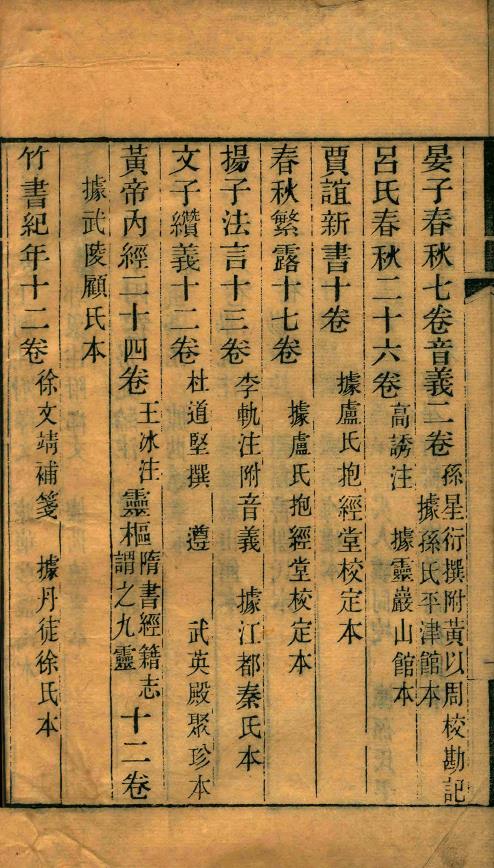 晏子春秋七卷音義二卷 孫星衍撰附黃以周校勘記 據孫氏平津館本
呂氏春秋二十六卷 高誘注 據靈巖山館本
賈誼新書十卷 據盧氏抱經堂校定本
春秋繁露十七卷 據盧氏抱經堂校定本
揚子法言十三卷 李軌注附音義 據江都秦氏本
文子纘義十二卷 杜道堅撰 遵 武英殿聚珍本
黃帝內經二十四卷 王冰注 靈樞 隋書經籍志謂之九靈 十二卷
據武陵顧氏本
竹書紀年十二卷 徐文靖補箋 據丹徒徐氏本